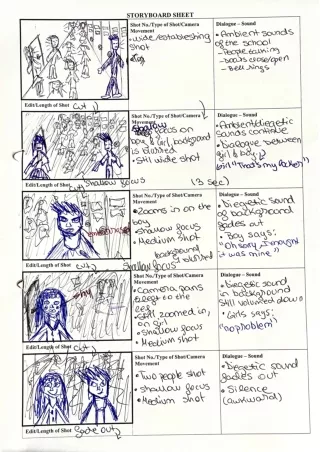 STORYBOARD SHEET
Shot No./Type of Shot/Camera Movement
• wide/establishing shot
Dialogue – Sound
• Ambient sounds of the school
- People talking
- Doors close/open
- Bell rings
Edit/Length of Shot Cut
Shot No./Type of Shot/Camera Movement
focus on
boy & girl, background
is blurred
• Still wide shot
Dialogue – Sound
• Ambient/diegetic
sounds continue
• Dialogue between
girl & boy
girl "That's my
Edit/Length of Shot Cut
Shallow focus
(3 sec)
Shot No./Type of Shot/Camera Movement
• Zooms in on the
boy
• Shallow focus
• Medium shot
background
is blurred
Dialogue – Sound
• Diegetic sound
of background
fades out
• Boy says:
"Oh sorry, I thought
it was mine!"
Edit/Length of Shot Cut
Shallow focus
shy
Shot No./Type of Shot/Camera Movement
• Camera pans
to the
left
• Still zoomed in,
on girl
• Shallow focus
• Medium shot
Dialogue – Sound
• Diegetic sound
in background
still volumed down
• Girls says:
"no problem"
Edit/Length of Shot Cut
Shot No./Type of Shot/Camera Movement
• Two people shot
• Shallow focus
• Medium shot
Dialogue – Sound
• Diegetic sound
fades out
• Silence
(awkward)
Edit/Length of Shot fade out